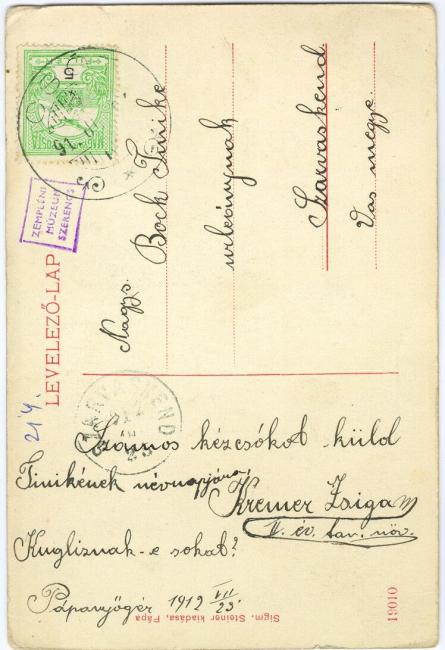 LEVELEZŐ-LAP
Nagys.
Bock Tinike
urleánynak
Szarvaskend
Vas megye.
ZEMPLÉNI
MÚZEUM
SZERENCS
214.
SZARVASKEND
Számos kézcsókot küld
Tinikének névnapjára
Kremer Zsigam
II. év. tan. növ.
Kugliznak-e sokat?
Pápanyögér 1912 VII/23.
Sigm. Steiner kiadása, Pápa
19010